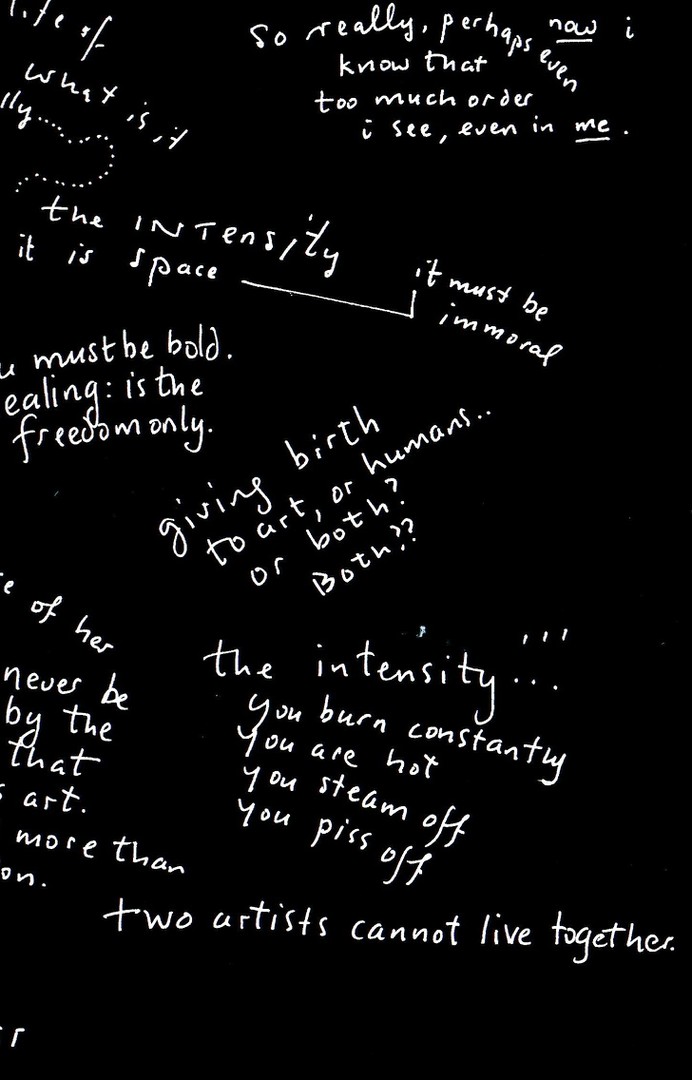 life of
what is it
lly.....
so really, perhaps now i
know that even
too much order
i see, even in me.
the INTensity
it is space
it must be
immoral
u must be bold.
ealing: is the
freedom only.
giving birth
to art, or humans..
or both?
Both??
e of her
never be
by the
that
s art.
more than
on.
the intensity...
you burn constantly
you are hot
you steam off
you piss off
two artists cannot live together.
r